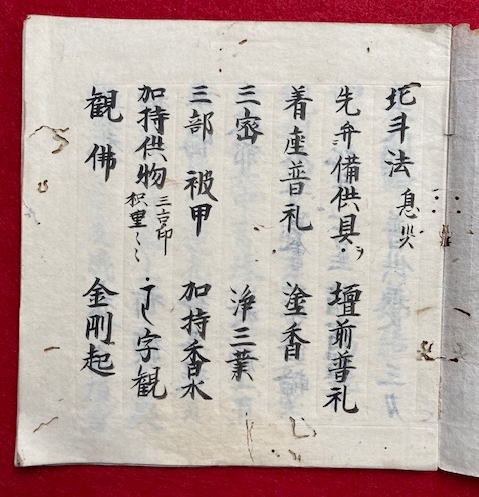 北斗法 息災
先弁備供具 壇前普礼
着座普礼 塗香
三密 浄三業
三部 被甲 加持香水
加持供物 三古印 字観
観佛 金剛起